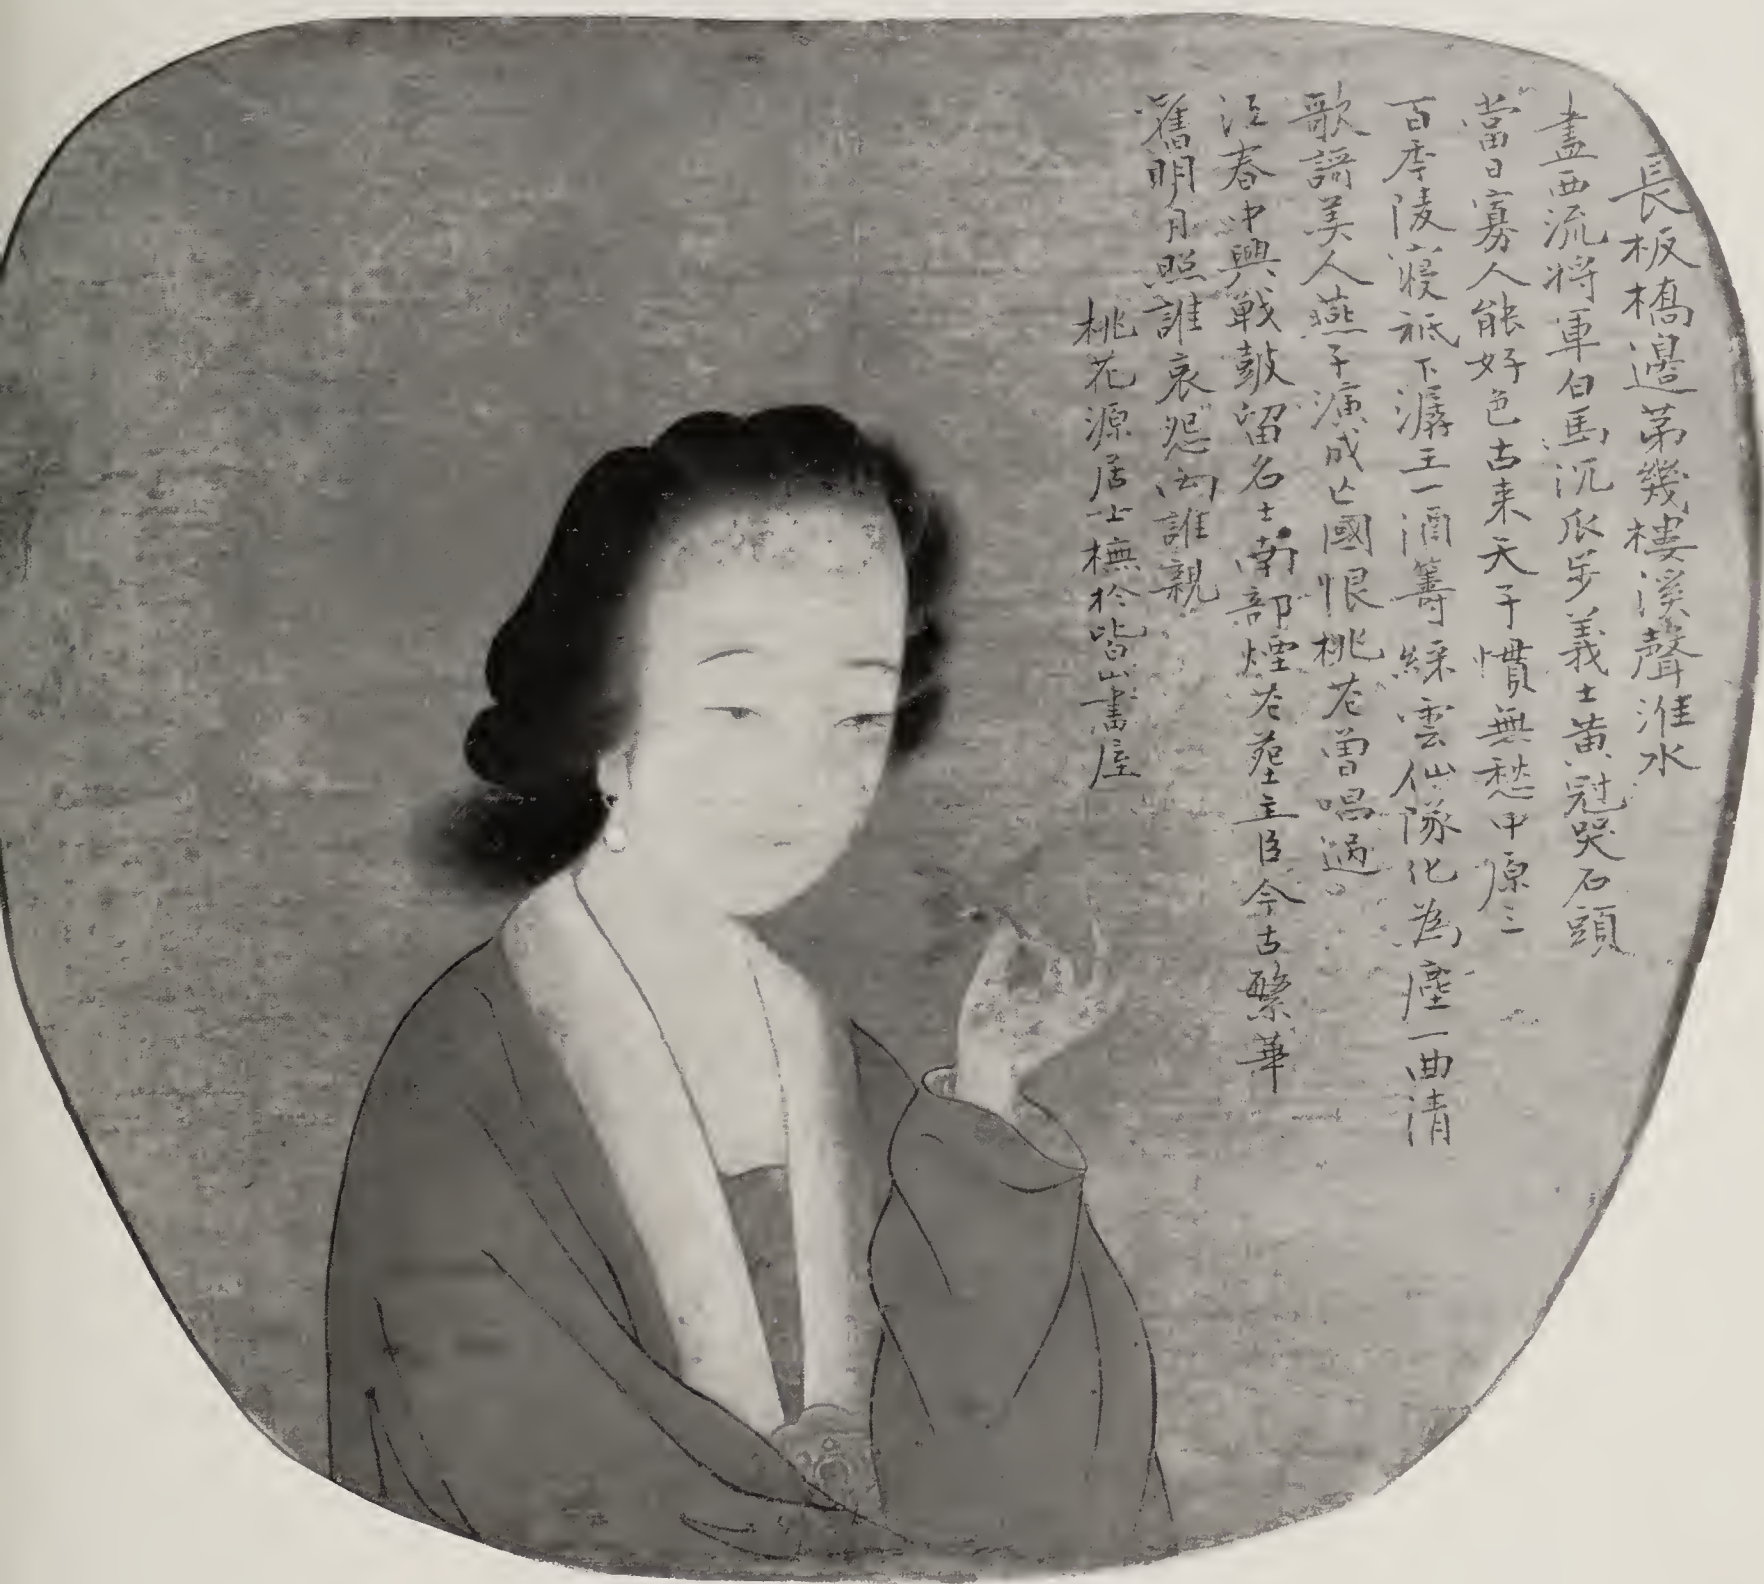 長板橋邊苐幾樓溪聲淮水
盡西流將軍白馬沉瓜步義士黄冠哭石頭
當日寡人能好色古来天子慣無愁中原三
百季陵寢祗下王一酒籌綵雲仙隊化為塵一曲清
歌美人燕子演成亡國恨桃花曾唱過
江春中興戰鼓留名士南部煙花塟主臣今古繁華
舊明月照誰哀怨向誰親
桃花源居士橅於皆山書屋